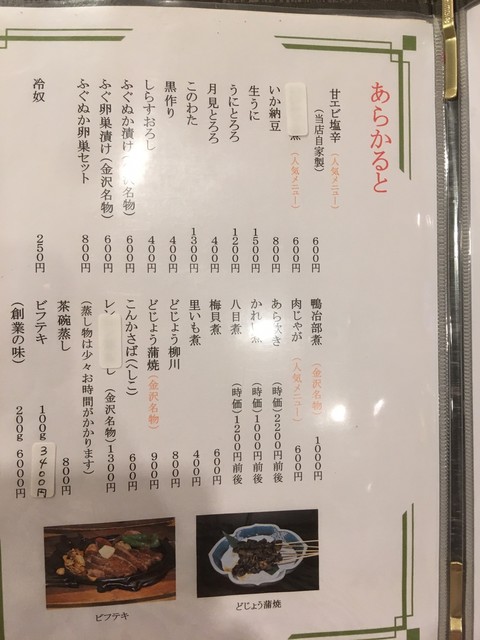 あらかると
甘エビ塩辛 (人気メニュー) 600円
(当店自家製)
煮 (人気メニュー) 600円
いか納豆 800円
生うに 1500円
うにとろろ 1200円
月見とろろ 700円
このわた 1300円
黒作り 400円
しらすおろし 400円
ふぐぬか漬け 名物) 600円
ふぐ卵巣漬け (金沢名物) 600円
ふぐぬか卵巣セット 800円
冷奴 250円
鴨治部煮 (金沢名物) 1000円
肉じゃが (人気メニュー) 600円
あら炊き (時価) 2200円前後
かれ 煮 (時価) 1000円前後
八目煮 (時価) 1200円前後
梅貝煮 600円
里いも煮 400円
どじょう柳川 800円
どじょう蒲焼 (金沢名物) 900円
こんかさば (へしこ) 600円
レン し (金沢名物) 1300円
(蒸し物は少々お時間がかかります)
茶碗蒸し 800円
ビフテキ 100g 3400円
(創業の味) 200g 6000円
ビフテキ
どじょう蒲焼